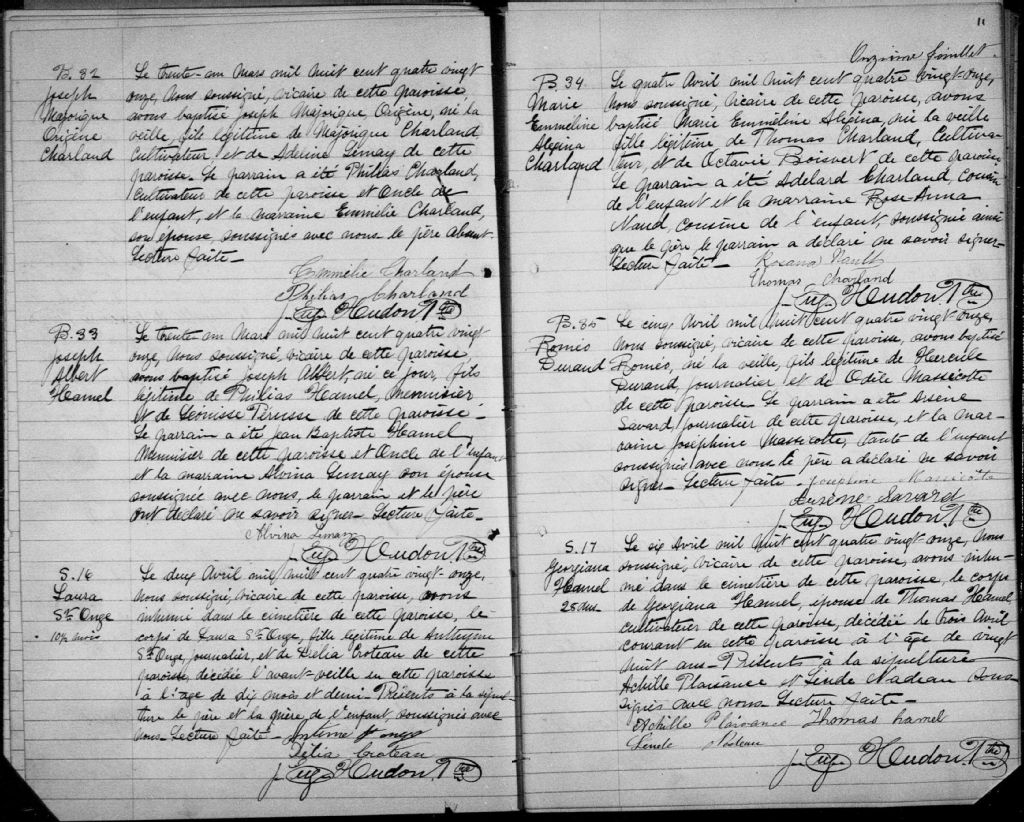 B. 32
Joseph
Majorique
Origène
Charland
Le trente-un Mars mil huit cent quatre vingt
onze, Nous soussigné, vicaire de cette paroisse,
avons baptisé Joseph Majorique, Origène, né la
veille, fils légitime de Majorique Charland
Cultivateur, et de Adeline Lemay de cette
paroisse. Le parrain a été Philias Charland,
Cultivateur de cette paroisse et Oncle de
l'enfant, et la marraine Emmélie Charland,
son épouse, soussignés avec nous le père absent.
Lecture faite -
Emmélie Charland
Philias Charland
J. Eug. Heudon Ptre
B. 33
Joseph
Albert
Hamel
Le trente un Mars mil huit cent quatre vingt
onze, Nous soussigné, vicaire de cette paroisse,
avons baptisé Joseph Albert, né ce jour, fils
légitime de Philias Hamel, Menuisier
et de Léonisse Pérusse de cette paroisse -
Le parrain a été Jean Baptiste Hamel,
Menuisier de cette paroisse et Oncle de l'enfant
et la marraine Alvina Lemay son épouse
soussignée avec nous, le parrain et le père
ont déclaré ne savoir signer - Lecture faite -
Alvina Lemay
J. Eug. Heudon Ptre
S. 16
Laura
St Onge
10½ mois
Le deux Avril mil huit cent quatre vingt-onze,
Nous soussigné, vicaire de cette paroisse, avons
inhumé dans le cimetière de cette paroisse, le
corps de Laura St Onge, fille légitime de
St Onge, journalier, et de Délia Croteau de cette
paroisse, décédée l'avant-veille en cette paroisse
à l'âge de dix mois et demi. Présents à la sépul-
ture le père et la mère, de l'enfant, soussignés avec
nous - Lecture faite -
Délia Croteau
J. Eug. Heudon Ptre
11
Onzième feuillet
B. 34
Marie
Emméline
Alégina
Charland
Le quatre Avril mil huit cent quatre vingt-onze,
Nous soussigné, vicaire de cette paroisse, avons
baptisé Marie Emméline Alégina, née la veille
fille légitime de Thomas Charland, Cultiva-
teur, et de Octavie Boisvert de cette paroisse
Le parrain a été Adelard Charland, cousin
de l'enfant et la marraine Rose Anna
Naud, cousine de l'enfant, soussignée ainsi
que le père le parrain a déclaré ne savoir signer -
Lecture faite - Rosana Nault
Thomas Charland
J. Eug. Heudon Ptre
B. 35
Roméo
Durand
Le cinq Avril mil huit cent quatre vingt-onze,
Nous soussigné, vicaire de cette paroisse, avons baptisé
Roméo, né la veille, fils légitime de Hercule
Durand, journalier et de Odile Massicotte
de cette paroisse Le parrain a été Arsene
Savard, journalier de cette paroisse, et la mar-
raine Joséphine Massicotte, tante de l'enfant
soussignés avec nous le père a déclaré ne savoir
signer - Lecture faite - Josephine Massicotte
Arsène Savard
J. Eug. Heudon Ptre
S. 17
Georgiana
Hamel
28 ans
Le six Avril mil huit cent quatre vingt-onze, Nous
soussigné, vicaire de cette paroisse, avons inhu-
mé dans le cimetière de cette paroisse, le corps
de Georgiana Hamel, épouse de Thomas Hamel,
cultivateur de cette paroisse, décédée le trois Avril
courant en cette paroisse à l'âge de vingt
huit ans - Présents à la sépulture
Achille Plaisance et Linde Nadeau sous-
signés avec nous - Lecture faite -
Achille Plaisance Thomas hamel
Nadeau
J. Eug. Heudon Ptre